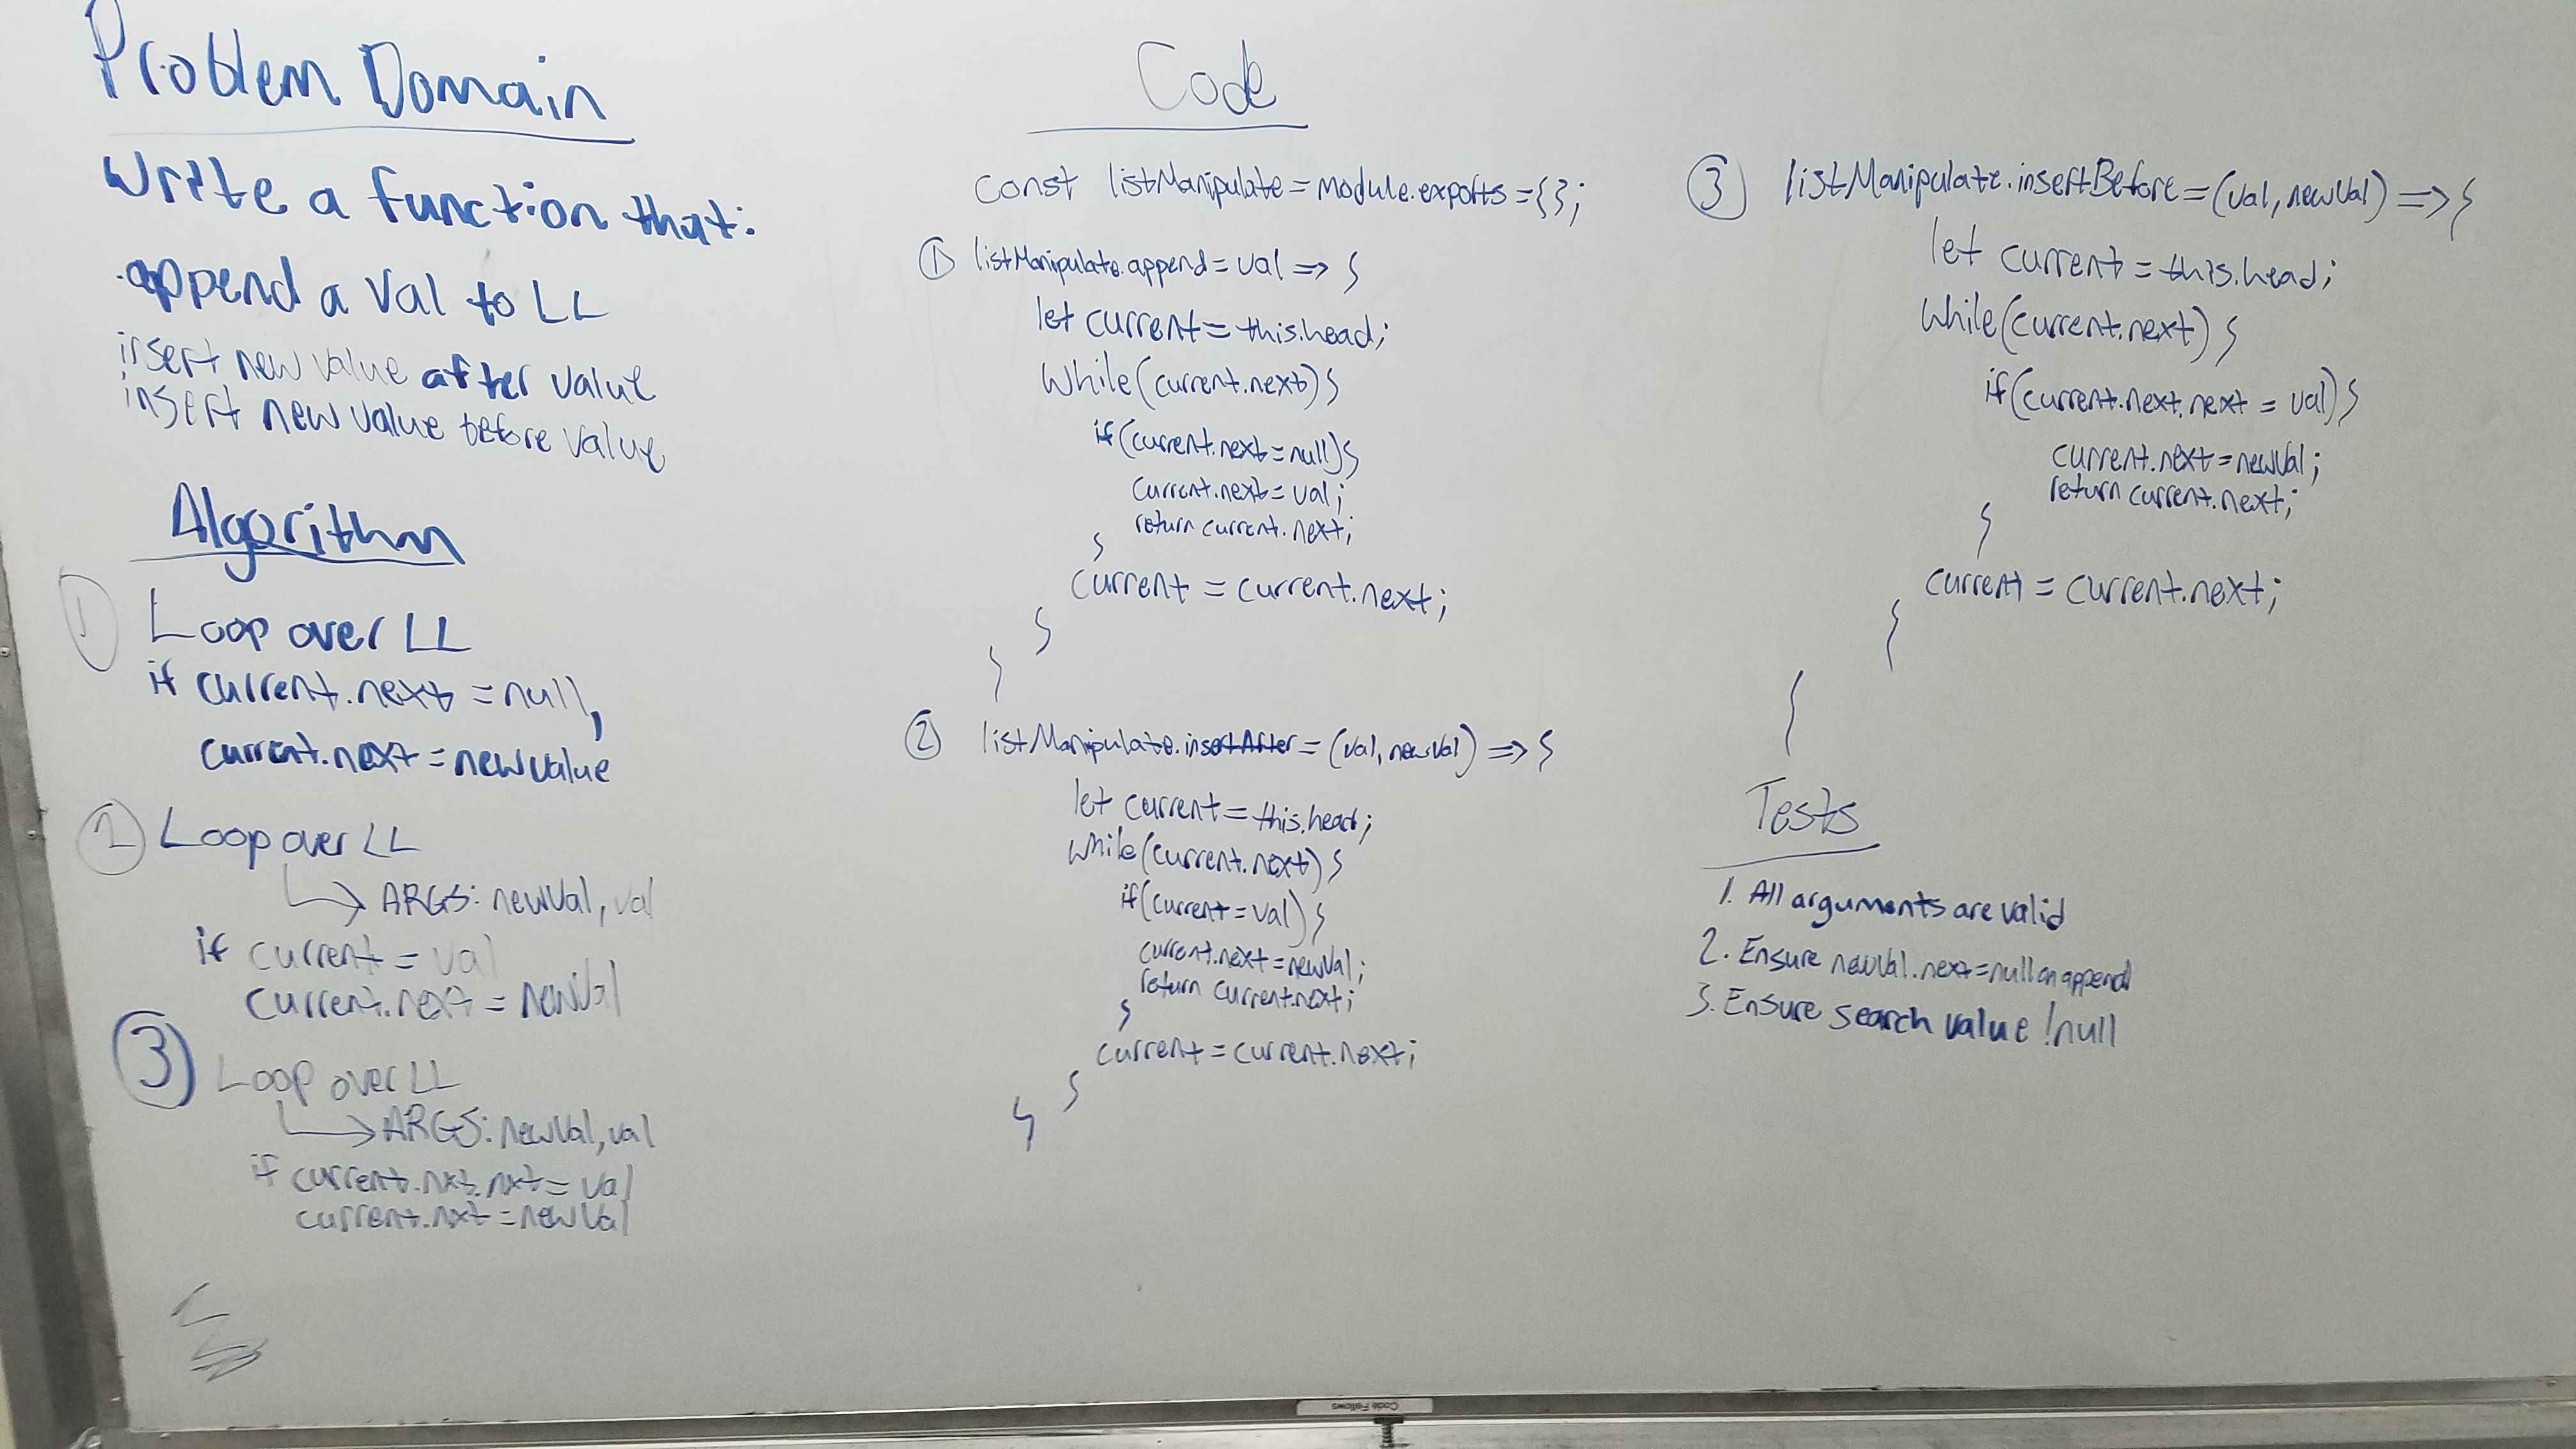 Problem Domain
Write a function that:
.append a val to LL
insert new value after value
insert new value before value
Algorithm
1 Loop over LL
if current.next = null,
current.next = newvalue
2 Loop over LL
→ ARGS: newVal, val
if current = val
current.next = newVal
3 Loop over LL
→ ARGS: newVal, val
if current.nxt.nxt = val
current.nxt = newVal
Code
const listManipulate = module.exports = {};
1 listManipulate.append = val => {
let current = this.head;
while(current.next){
if(current.next = null){
current.next = val;
return current.next;
}
current = current.next;
}
}
2 listManipulate.insertAfter = (val, newVal) => {
let current = this.head;
while(current.next){
if(current = val){
current.next = newVal;
return current.next;
}
current = current.next;
}
}
3 listManipulate.insertBefore = (val, newVal) => {
let current = this.head;
while(current.next){
if(current.next.next = val){
current.next = newVal;
return current.next;
}
current = current.next;
}
}
Tests
1. All arguments are valid
2. Ensure newVal.next = null on append
3. Ensure search value !null
Code Fellows